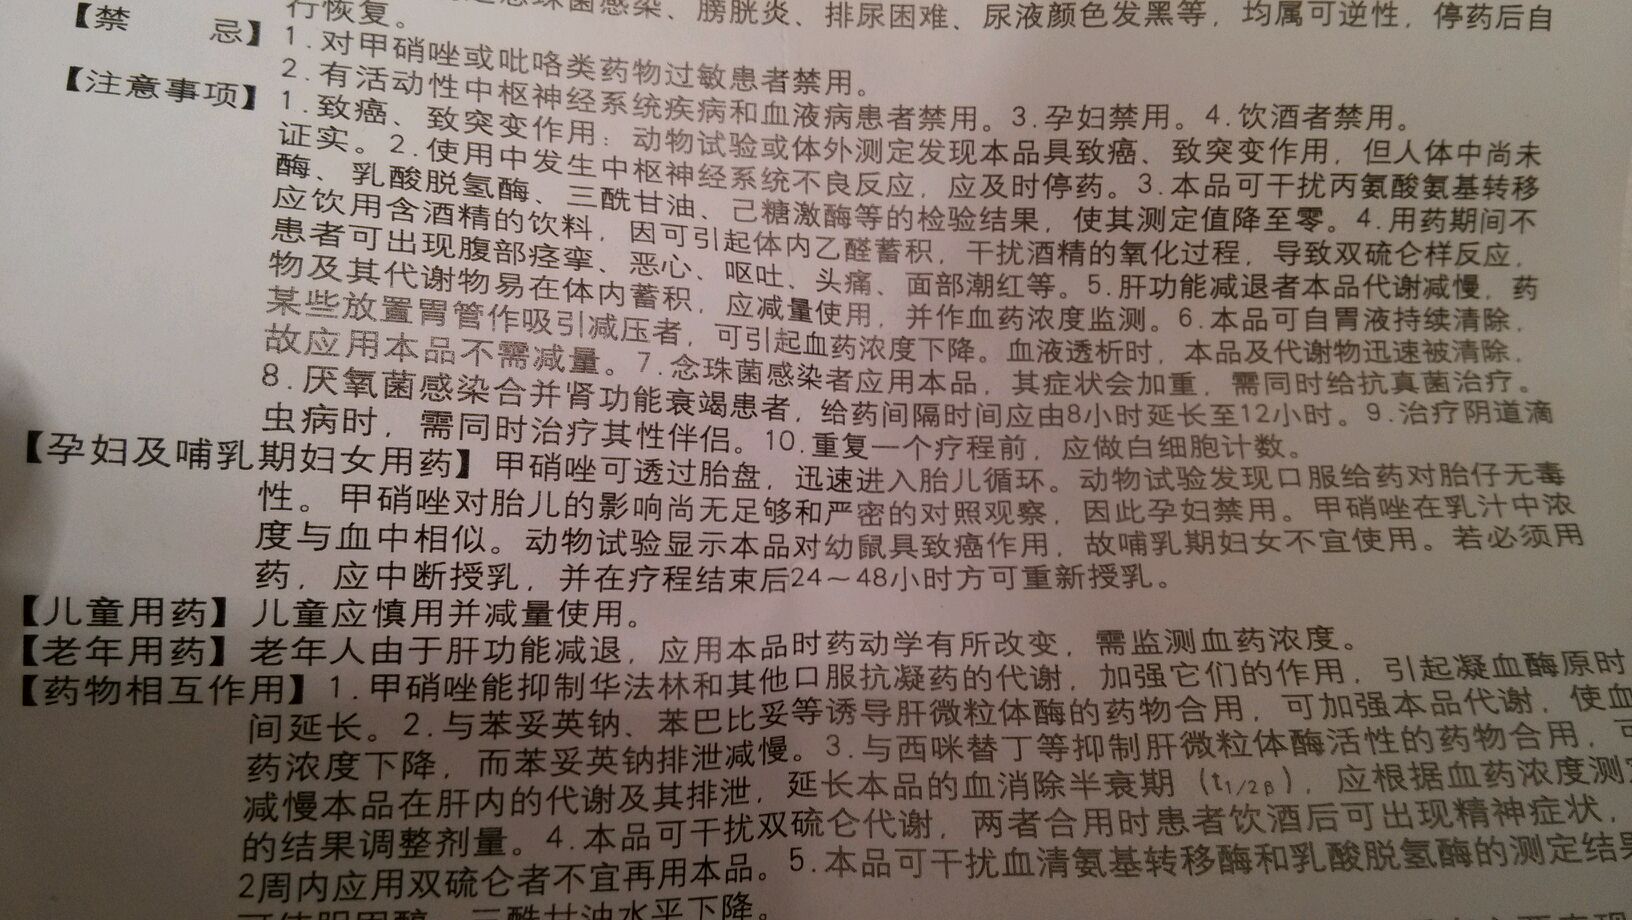 念珠菌感染、膀胱炎、排尿困难、尿液颜色发黑等，均属可逆性，停药后自
行恢复。
【禁 忌】1.对甲硝唑或吡咯类药物过敏患者禁用。
2.有活动性中枢神经系统疾病和血液病患者禁用。3.孕妇禁用。4.饮酒者禁用。
【注意事项】1.致癌、致突变作用：动物试验或体外测定发现本品具致癌、致突变作用，但人体中尚未
证实。2.使用中发生中枢神经系统不良反应，应及时停药。3.本品可干扰丙氨酸氨基转移
酶、乳酸脱氢酶、三酰甘油、己糖激酶等的检验结果，使其测定值降至零。4.用药期间不
应饮用含酒精的饮料，因可引起体内乙醛蓄积，干扰酒精的氧化过程，导致双硫仑样反应，
患者可出现腹部痉挛、恶心、呕吐、头痛、面部潮红等。5.肝功能减退者本品代谢减慢，药
物及其代谢物易在体内蓄积，应减量使用，并作血药浓度监测。6.本品可自胃液持续清除，
某些放置胃管作吸引减压者，可引起血药浓度下降。血液透析时，本品及代谢物迅速被清除，
故应用本品不需减量。7.念珠菌感染者应用本品，其症状会加重，需同时给抗真菌治疗。
8.厌氧菌感染合并肾功能衰竭患者，给药间隔时间应由8小时延长至12小时。9.治疗阴道滴
虫病时，需同时治疗其性伴侣。10.重复一个疗程前，应做白细胞计数。
【孕妇及哺乳期妇女用药】甲硝唑可透过胎盘，迅速进入胎儿循环。动物试验发现口服给药对胎仔无毒
性。甲硝唑对胎儿的影响尚无足够和严密的对照观察，因此孕妇禁用。甲硝唑在乳汁中浓
度与血中相似。动物试验显示本品对幼鼠具致癌作用，故哺乳期妇女不宜使用。若必须用
药，应中断授乳，并在疗程结束后24～48小时方可重新授乳。
【儿童用药】儿童应慎用并减量使用。
【老年用药】老年人由于肝功能减退，应用本品时药动学有所改变，需监测血药浓度。
【药物相互作用】1.甲硝唑能抑制华法林和其他口服抗凝药的代谢，加强它们的作用，引起凝血酶原时
间延长。2.与苯妥英钠、苯巴比妥等诱导肝微粒体酶的药物合用，可加强本品代谢，使血
药浓度下降，而苯妥英钠排泄减慢。3.与西咪替丁等抑制肝微粒体酶活性的药物合用，可
减慢本品在肝内的代谢及其排泄，延长本品的血消除半衰期（t1/2β），应根据血药浓度测定
的结果调整剂量。4.本品可干扰双硫仑代谢，两者合用时患者饮酒后可出现精神症状，
2周内应用双硫仑者不宜再用本品。5.本品可干扰血清氨基转移酶和乳酸脱氢酶的测定结果
可使胆固醇、三酰甘油水平下降。